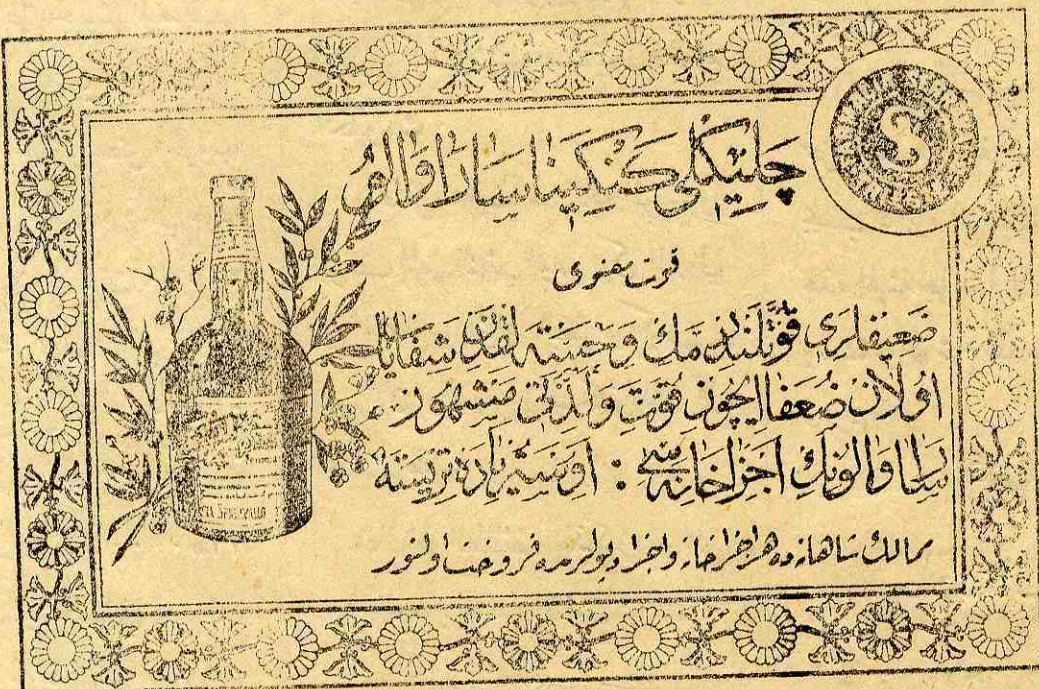 چلیكلی كنكینا ساراوالو
قوت معنوی
ضعیفلری قوتلندیرمك و خسته‌لقدن شفایاب
اولان ضعفا ایچون قوت و لذتی مشهور
ساراوالونك اجزاخانه‌سی : اوستریاده تریسته
ممالك شاهانه‌ده هر اجزاخانه و اجزا دپولرنده فروخت اولنور
S